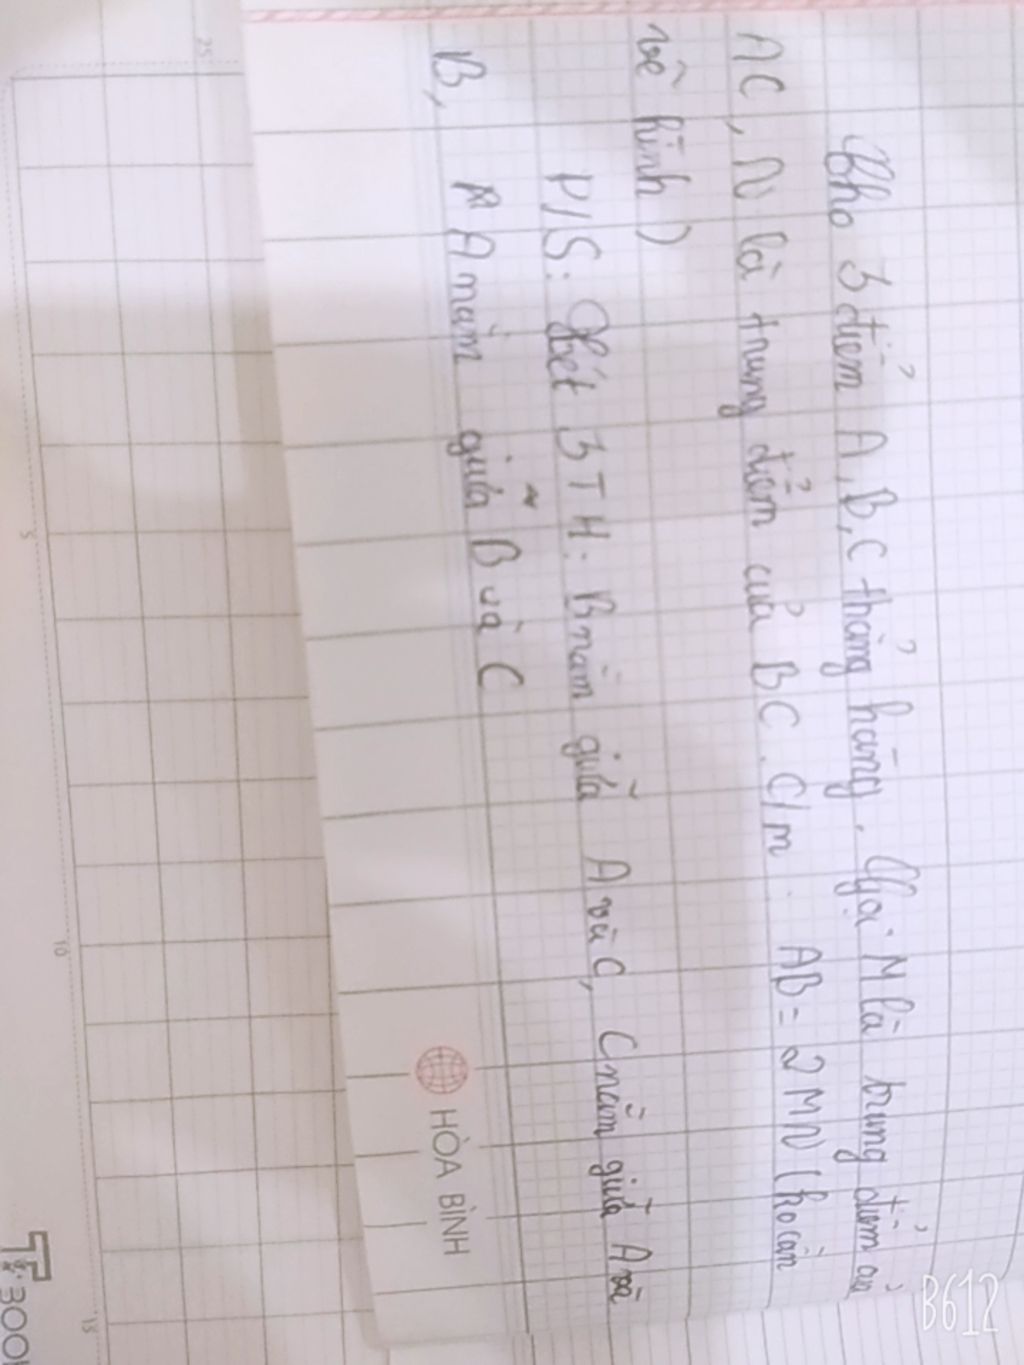 Cho 3 điểm A, B, C thẳng hàng. Gọi M là trung điểm của
AC, N là trung điểm của BC. C/m: AB = 2 MN (ko cần
vẽ hình)
P/S: Xét 3 TH: B nằm giữa A và C, C nằm giữa A và
B, A nằm giữa B và C
HÒA BÌNH
B612
25
5
10
15